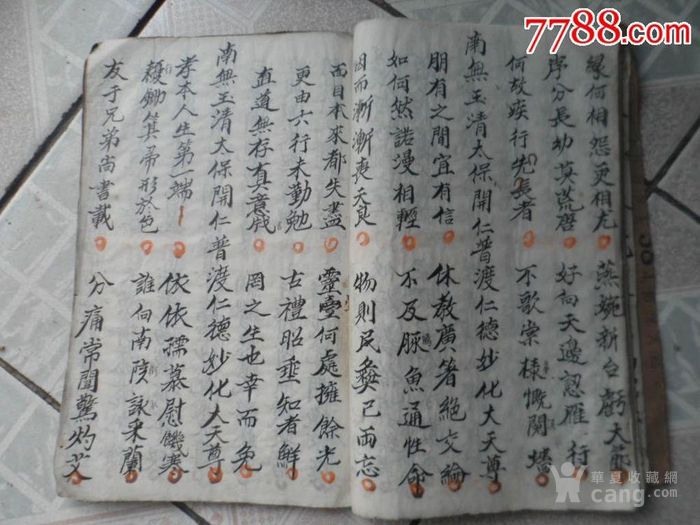 7788.com
緣何相怨更相尤 燕婉新台虧大
序分長幼莫荒唐 好向天邊認雁行
何故疾行先長者 不歌棠棣慨鬩墻
南無玉清太保開仁普渡仁德妙化大天尊
朋有之間宜有信 休教廣著絕交論
如何然諾漫相輕 不及豚魚通性命
因而漸漸喪天良 物則民彝已両忘
面目本來都失盡 靈臺何處擁餘光
更由六行未勤勉 古禮昭垂知者鮮
直道無存真意 罔之生也幸而免
南無玉清太保開仁普渡仁德妙化大天尊
孝本人生第一端 依依孺慕慰饑寒
耰鋤箕帚形於色 誰向南陔詠采蘭
友于兄弟尚書載 分痛常聞驚灼艾
華夏收藏網
cang.com